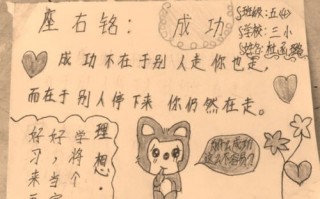 座右铭: 成功
班级:五(4)
学校:三小
姓名:
成功不在于别人走你也走,
而在于别人停下来你仍然在走。
理想:
好好学
习,将
来当个
为什么成功